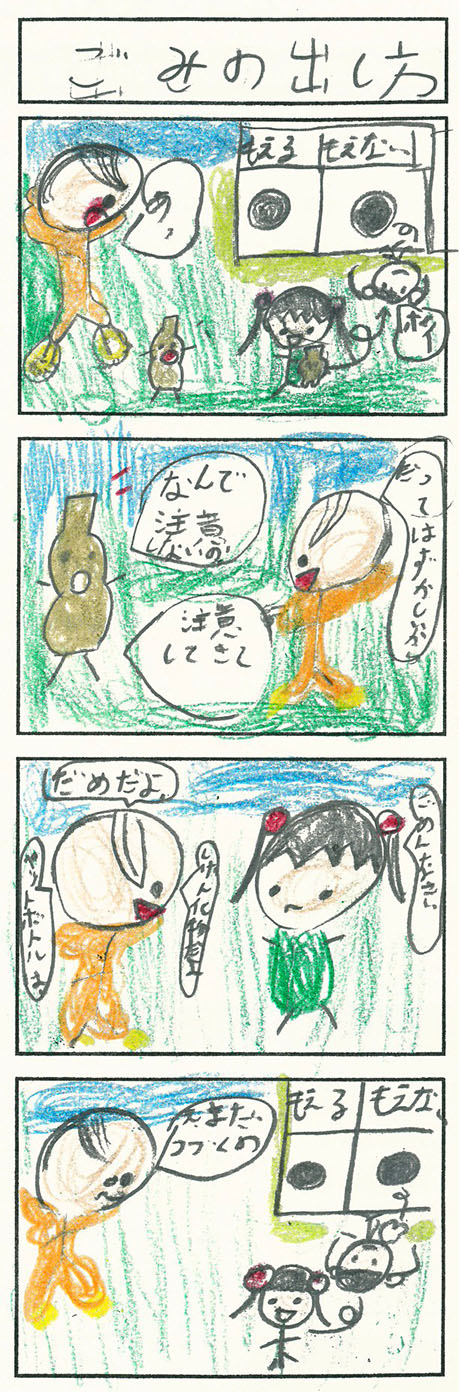 ごみの出し方
もえる
もえない
あっ
ポイ
だってはずかしいが
なんで
注意
しないの
注意
してきて
だめだよ。
ごめんなさい
しげん化物だよ
ペットボトルは、
えまだ
つづくの
もえる
もえない